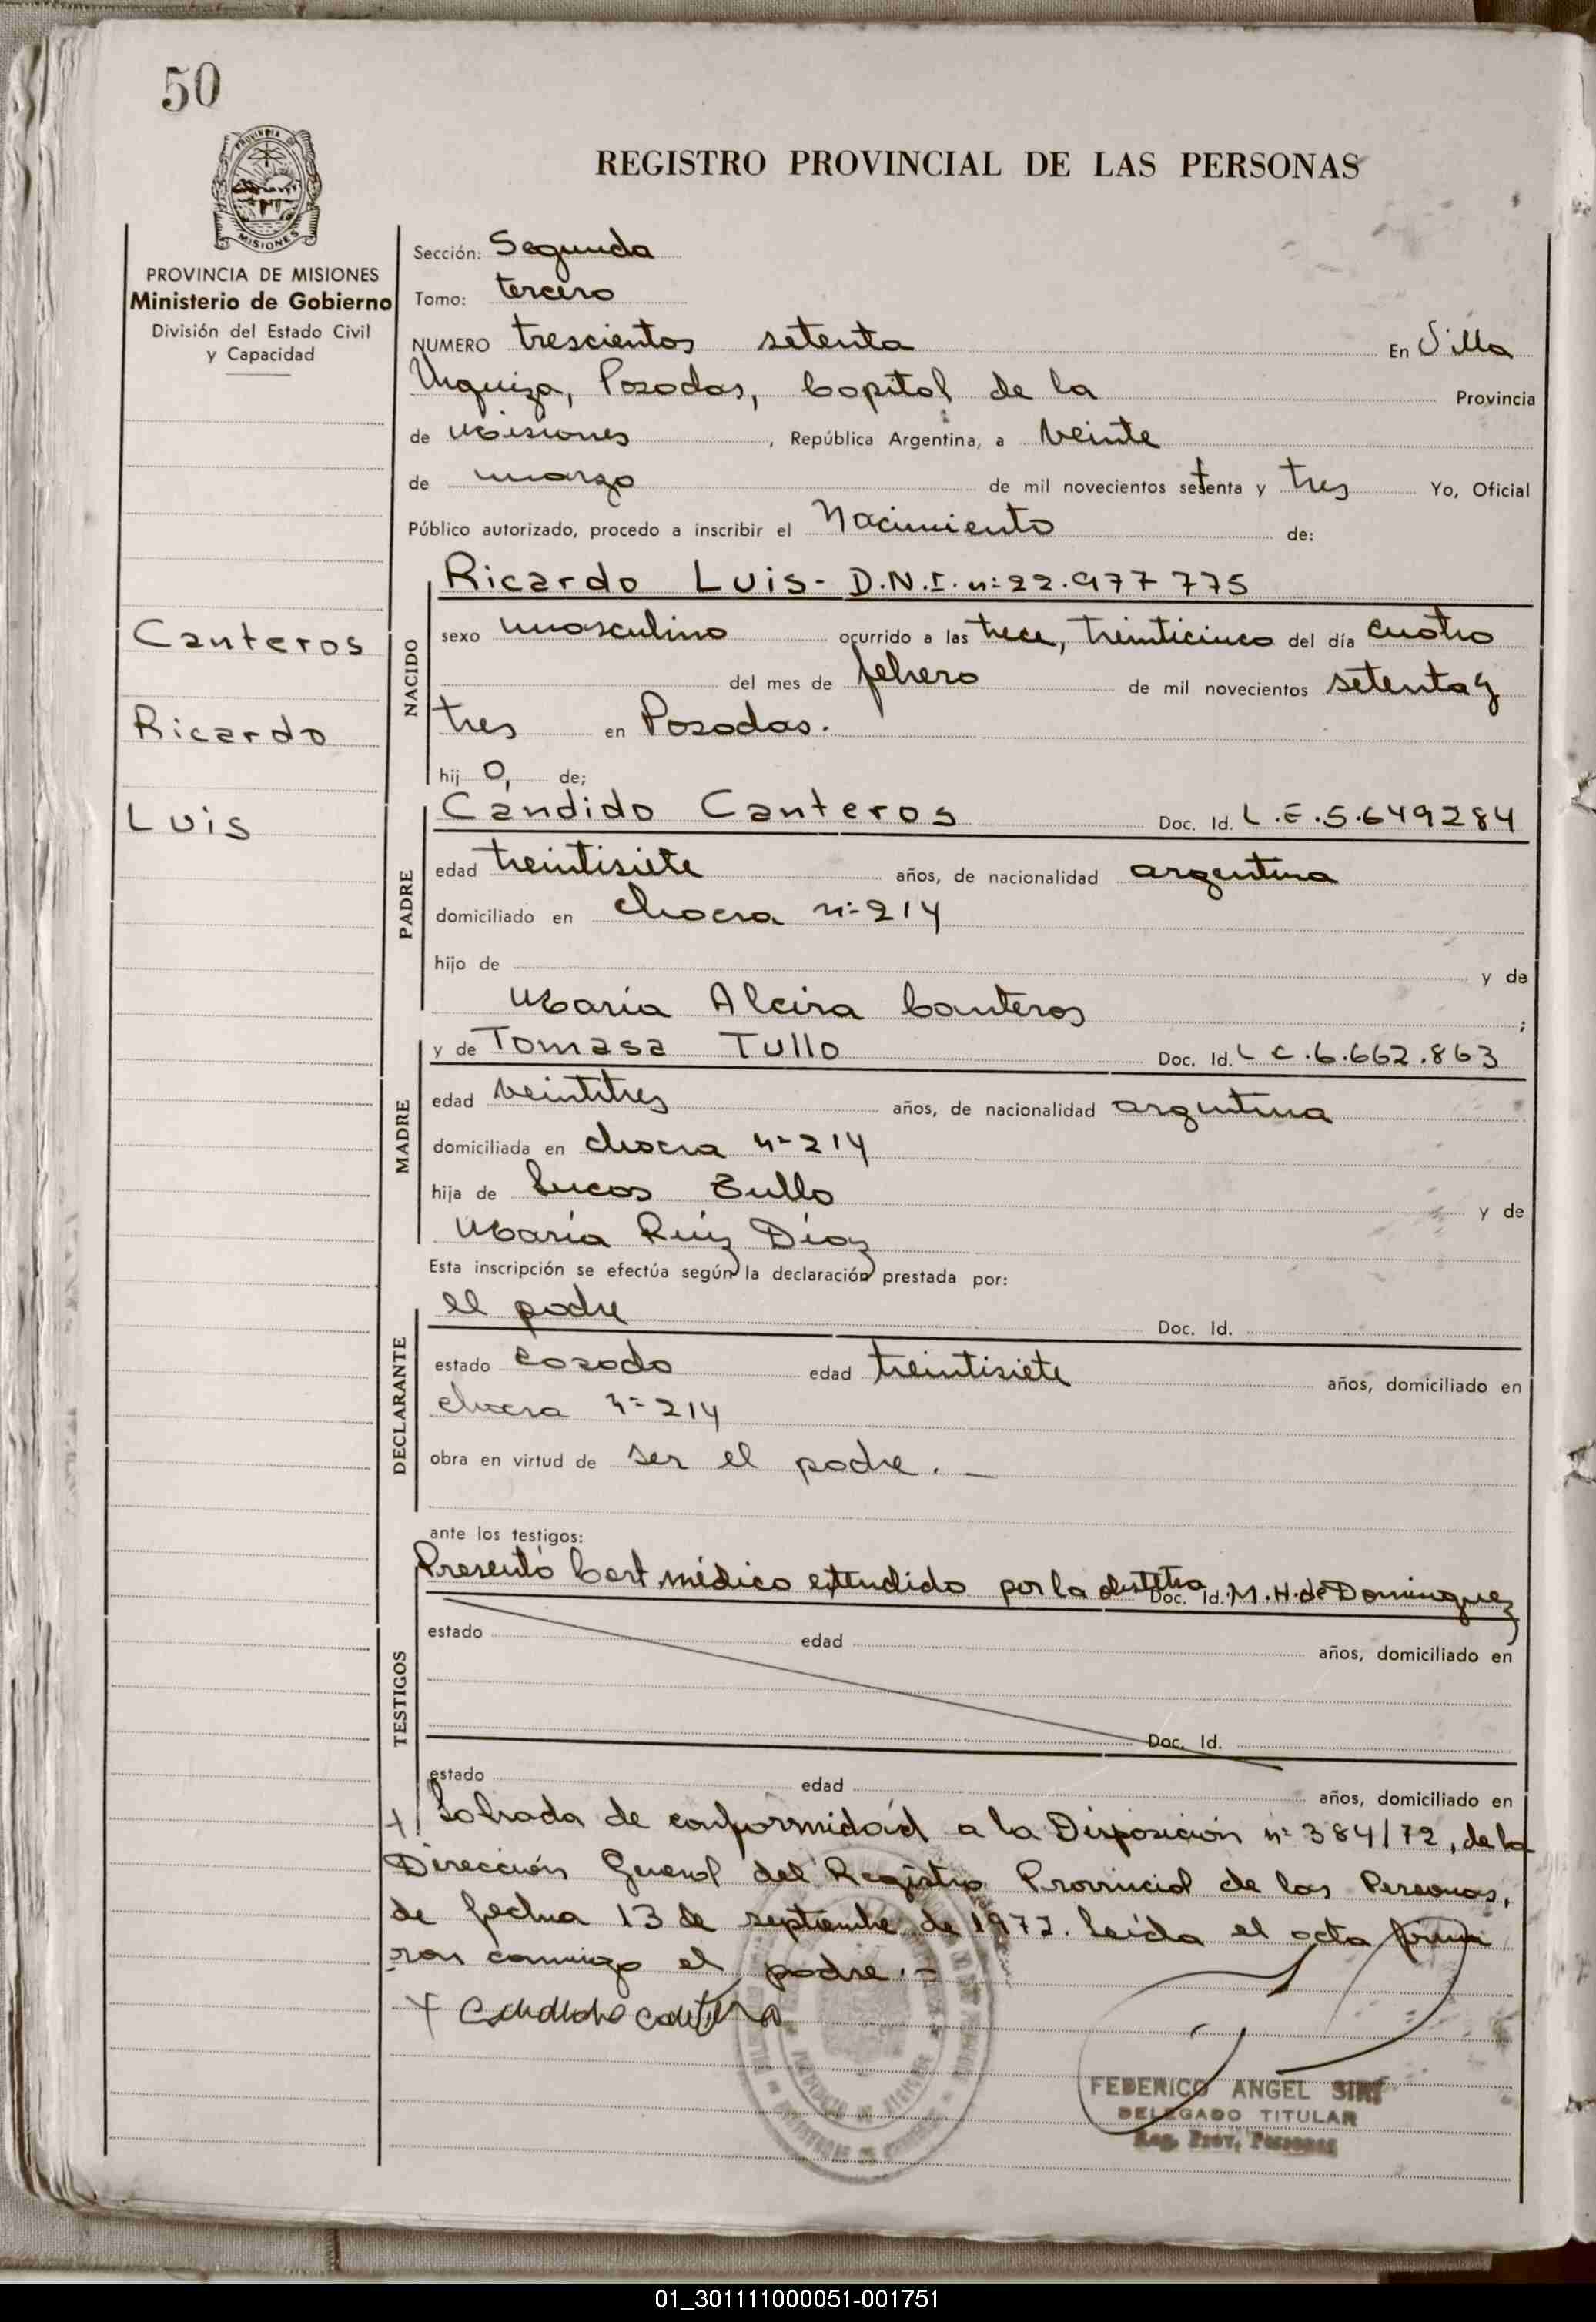 50
PROVINCIA DE
MISIONES
REGISTRO PROVINCIAL DE LAS PERSONAS
PROVINCIA DE MISIONES
Ministerio de Gobierno
División del Estado Civil
y Capacidad
Canteros
Ricardo
Luis
Sección: Segunda
Tomo: tercero
NUMERO trescientos setenta En Villa
Urquiza, Posadas, Capital de la Provincia
de Misiones, República Argentina, a veinte
de marzo de mil novecientos setenta y tres Yo, Oficial
Público autorizado, procedo a inscribir el Nacimiento de:
NACIDO
Ricardo Luis- D.N.I. nº 22.977 775
sexo masculino ocurrido a las trece, treinticinco del día cuatro
del mes de febrero de mil novecientos setenta y
tres en Posadas.
hij o, de;
PADRE
Cándido Canteros Doc. Id. L.E.5.649284
edad treintisiete años, de nacionalidad argentina
domiciliado en chacra nº 214
hijo de y de
María Alcira Canteros ;
MADRE
y de Tomasa Tullo Doc. Id. L C.6.662.863
edad veintitres años, de nacionalidad argentina
domiciliada en chacra nº 214
hija de Lucas Tullo y de
María Ruiz Díaz
Esta inscripción se efectúa según la declaración prestada por:
DECLARANTE
el padre Doc. Id.
estado casado edad treintisiete años, domiciliado en
chacra nº 214
obra en virtud de ser el padre.-
ante los testigos:
TESTIGOS
Presentó Cert. médico extendido por la obstetra Doc. Id. M.H. de Dominguez
estado edad años, domiciliado en
Doc. Id.
estado edad años, domiciliado en
+ Labrada de conformidad a la Disposición nº 384/72, de la
Dirección General del Registro Provincial de las Personas,
de fecha 13 de septiembre de 1972. Leída el acta firma
ron conmigo el padre.-
FEDERICO ANGEL SIRI
DELEGADO TITULAR
Reg. Prov. Personas
01_301111000051-001751